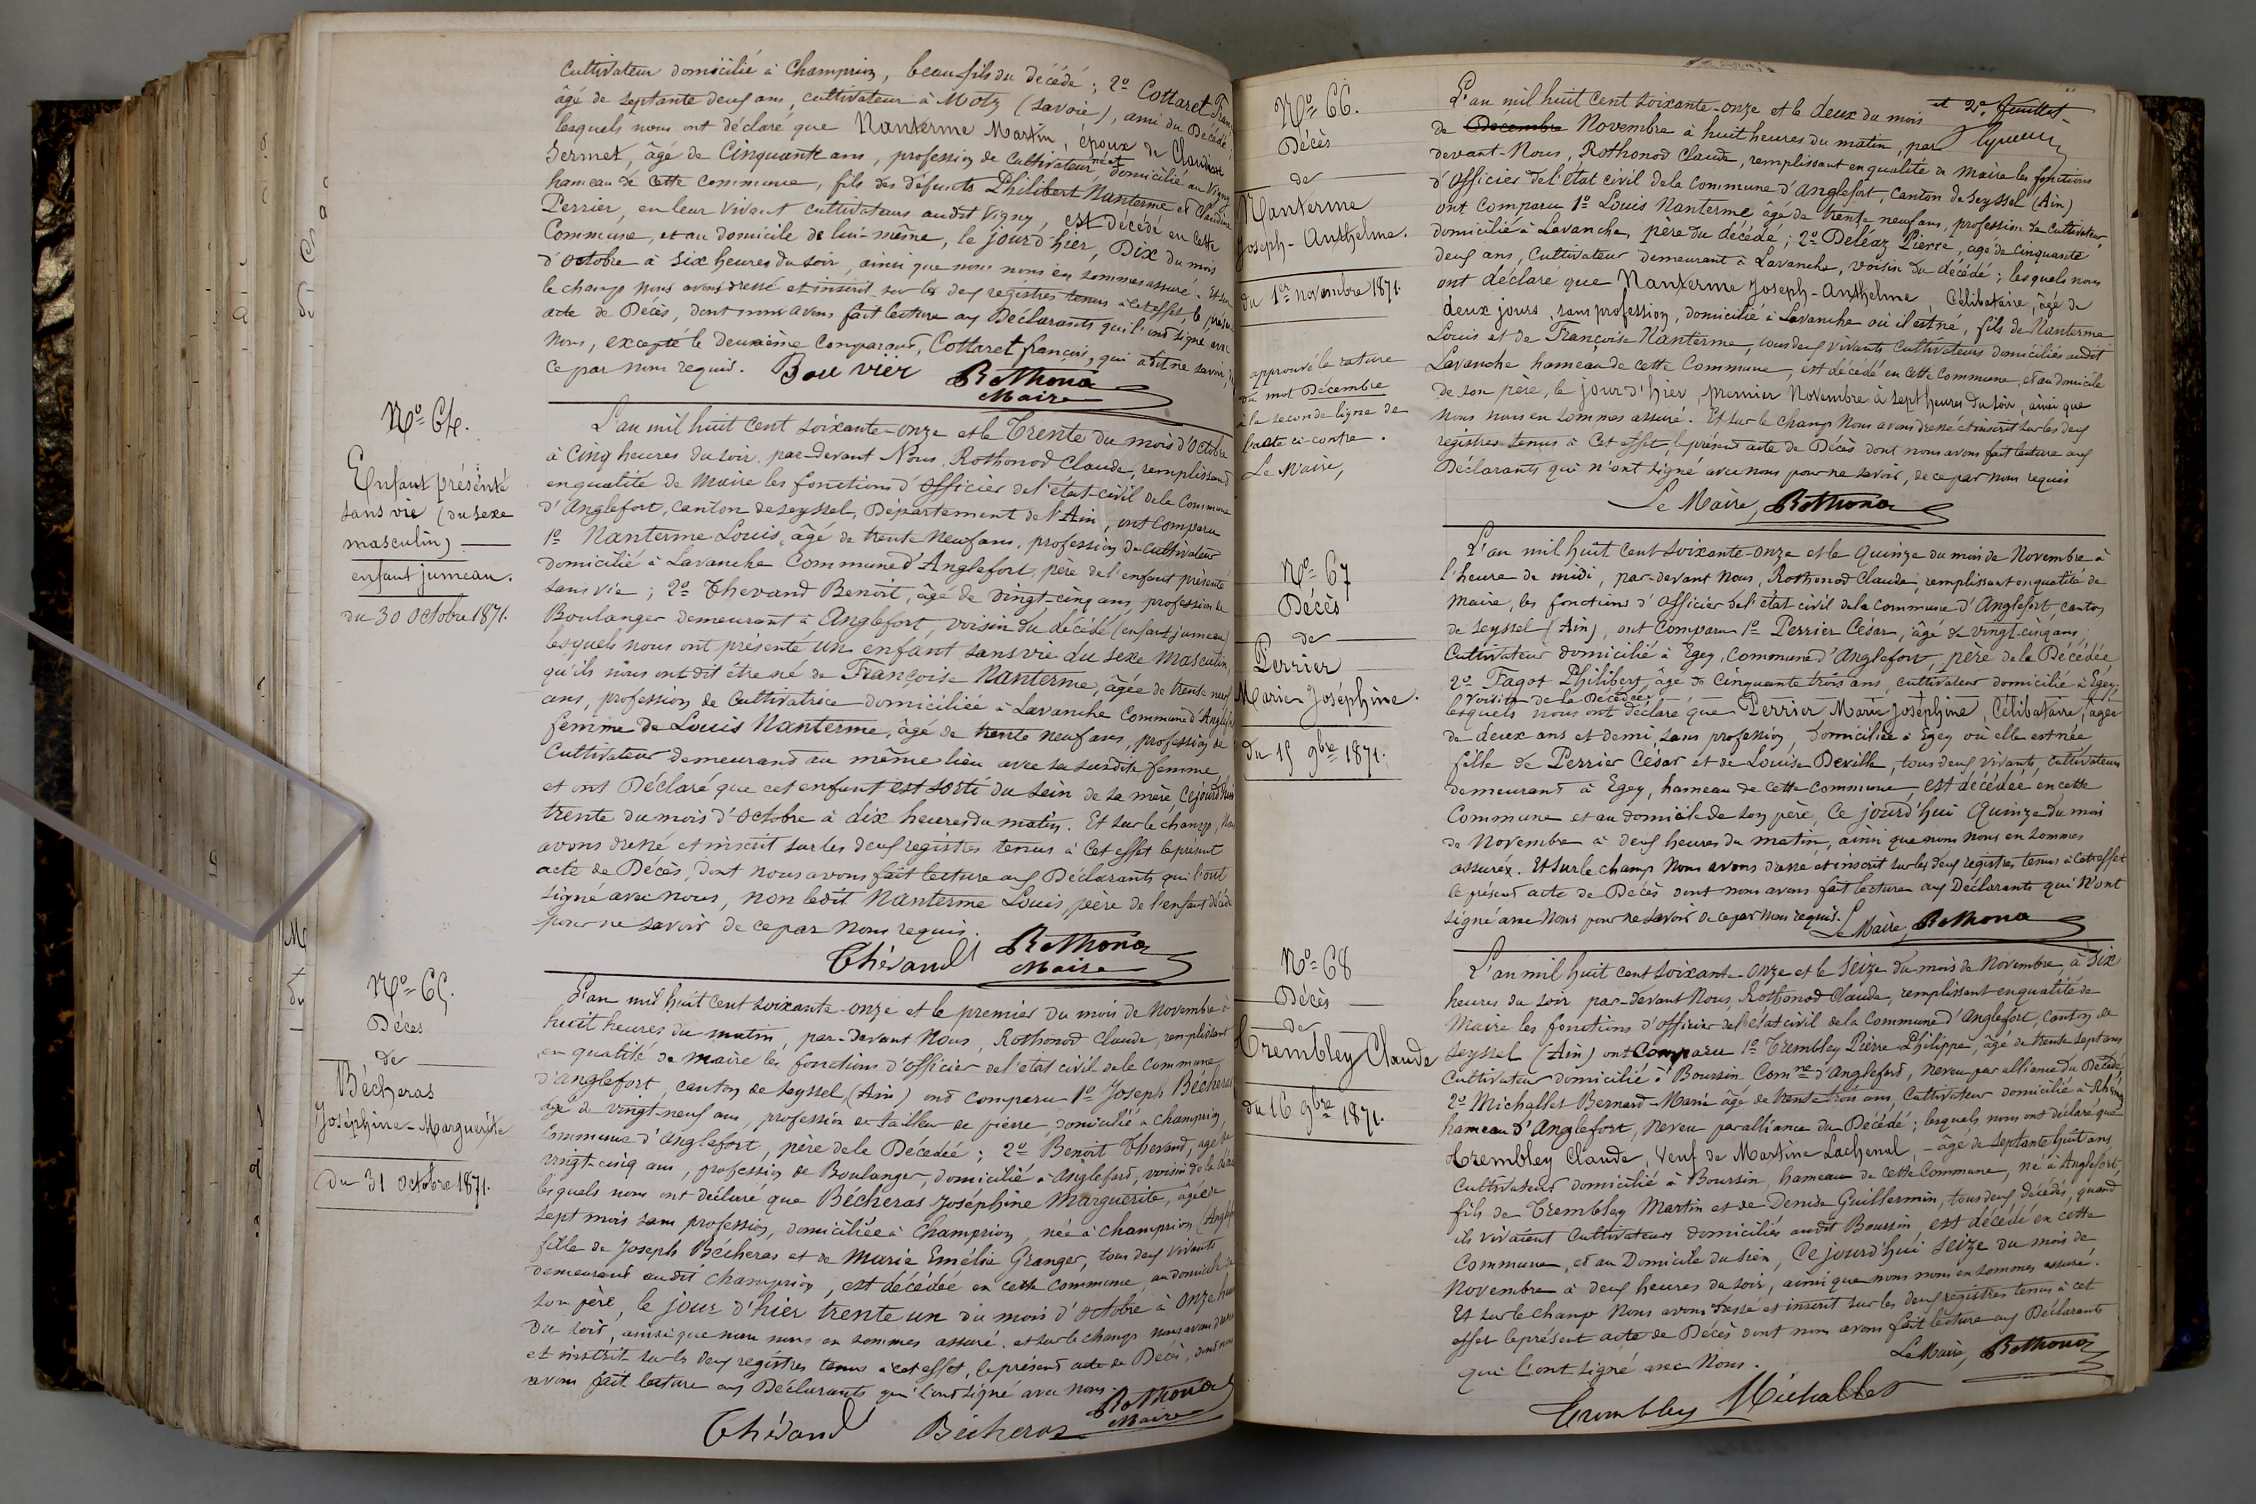 Cultivateur domicilié à Champrion, beau fils du décédé ; 2º Cottaret
âgé de septante deux ans, cultivateur à Motz (Savoie), ami du Décédé,
lesquels nous ont déclaré que Nanterme Martin, époux de Claudine
Sermet, âgé de Cinquante ans, profession de Cultivateur, né et domicilié au Vigny
hameau de cette commune, fils des défunts Philibert Nanterme et Claudine
Perrier, en leur vivant cultivateurs audit Vigny, est décédé en cette
Commune, et au domicile de lui-même, le jour d'hier, Dix du mois
d'octobre à six heures du soir, ainsi que nous nous en sommes assuré. Et sur
le champ nous avons dressé et inscrit sur les deux registres tenus à cet effet, le présent
acte de Décès, dont nous avons fait lecture aux Déclarants qui l'ont signé avec
Nous, excepté le deuxième Comparant, Cottaret françois, qui a dit ne savoir, de
ce par nous requis. Bouvier Rothonod
Maire
Nº 64.
Enfant présenté
sans vie (du sexe
masculin)
enfant jumeau.
du 30 Octobre 1871.
L'an mil huit cent soixante-onze et le Trente du mois d'Octobre
à Cinq heures du soir, par-devant Nous, Rothonod Claude, remplissant
en qualité de Maire les fonctions d'Officier de l'état-civil de la Commune
d'Anglefort, canton de Seyssel, Département de l'Ain, ont comparu
1º Nanterme Louis, âgé de trente neuf ans, profession de cultivateur
domicilié à Lavanche Commune d'Anglefort, père de l'enfant présenté
sans vie ; 2º Thevand Benoit, âgé de vingt-cinq ans, profession de
Boulanger demeurant à Anglefort, voisin du décédé (enfant jumeau)
lesquels nous ont présenté un enfant sans vie du sexe masculin,
qu'ils nous ont dit être né de Françoise Nanterme, âgée de trente neuf
ans, profession de Cultivatrice domiciliée à Lavanche Commune d'Anglefort
femme de Louis Nanterme, âgé de trente neuf ans, profession de
Cultivateur demeurant au même lieu avec sa susdite femme
et ont Déclaré que cet enfant est sorti du sein de sa mère, Cejourd'hui
trente du mois d'octobre à dix heures du matin. Et sur le champ, Nous
avons dressé et inscrit sur les deux registres tenus à cet effet le présent
acte de Décès, dont nous avons fait lecture aux Déclarants qui l'ont
signé avec nous, non ledit Nanterme Louis, père de l'enfant décédé
pour ne savoir de ce par nous requis.
Thévand Rothonod
Maire
Nº 65.
Décès
de
Bécheras
Joséphine-Marguerite
Du 31 octobre 1871.
L'an mil huit cent soixante-onze et le premier du mois de Novembre à
huit heures du matin, par-devant Nous, Rothonod Claude, remplissant
en qualité de maire les fonctions d'officier de l'état civil de la Commune
d'anglefort, canton de Seyssel (Ain) ont comparu 1º Joseph Bécheras
âgé de vingt-neuf ans, profession de tailleur de pierre, domicilié à Champrion,
Commune d'Anglefort, père de la Décédée ; 2º Benoit Thevand, âgé de
vingt-cinq ans, profession de Boulanger, domicilié à Anglefort, voisin de la
lesquels nous ont déclaré que Bécheras Joséphine Marguerite, âgée de
sept mois sans profession, domiciliée à Champrion, née à Champrion
fille de Joseph Bécheras et de Marie Emélie Granger, tous deux vivants
demeurant audit Champrion, est décédée en cette commune, au domicile de
son père, le jour d'hier trente un du mois d'octobre à onze heures
du soir, ainsi que nous nous en sommes assuré. et sur le champ nous avons dressé
et inscrit sur les deux registres tenus à cet effet, le présent acte de Décès, dont nous
avons fait lecture aux Déclarants qui l'ont signé avec nous.
Thévand Bécheras Rothonod
Maire
et 2e feuillet
Nº 66.
Décès
de
Nanterme
Joseph-Anthelme.
du 1er novembre 1871.
approuvé la rature
du mot Décembre
à la seconde ligne de
l'acte ci-contre.
Le Maire,
L'an mil huit cent soixante-onze et le deux du mois
de Décembre Novembre à huit heures du matin, par
devant-Nous, Rothonod Claude, remplissant en qualité de Maire les fonctions
d'Officier de l'état civil de la Commune d'Anglefort, Canton de Seyssel (Ain)
ont Comparu 1º Louis Nanterme, âgé de trente neuf ans, profession de Cultivateur,
domicilié à Lavanche, père du décédé ; 2º Deléaz Pierre, âgé de Cinquante
deux ans, Cultivateur demeurant à Lavanche, voisin du décédé ; lesquels nous
ont déclaré que Nanterme Joseph-Anthelme, Célibataire, âgé de
deux jours, sans profession, domicilié à Lavanche où il est né, fils de Nanterme
Louis et de Françoise Nanterme, tous deux vivants Cultivateurs domiciliés audit
Lavanche hameau de cette Commune, est décédé en cette commune, et au domicile
de son père, le jour d'hier, premier Novembre à sept heures du soir, ainsi que
nous nous en sommes assuré. Et sur le champ Nous avons dressé et inscrit sur les deux
registres tenus à cet effet, le présent acte de Décès dont nous avons fait lecture aux
Déclarants qui n'ont signé avec nous pour ne savoir, de ce par nous requis
Le Maire, Rothonod
Nº 67
Décès
de
Perrier
Marie-Joséphine.
du 15 9bre 1871.
L'an mil huit cent soixante-onze et le Quinze du mois de Novembre à
l'heure de midi, par-devant nous, Rothonod Claude, remplissant en qualité de
Maire, les fonctions d'officier de l'état civil de la commune d'Anglefort, canton
de Seyssel (Ain), ont Comparu 1º Perrier César, âgé de vingt-cinq ans,
Cultivateur domicilié à Egey, Commune d'Anglefort, père de la Décédée
2º Fagot Philibert, âgé de Cinquante trois ans, cultivateur domicilié à Egey,
voisin de la Décédée
lesquels nous ont déclaré que Perrier Marie Joséphine, Célibataire, âgée
de deux ans et demi, sans profession, domiciliée à Egey où elle est née,
fille de Perrier César et de Louise Deville, tous deux vivants, cultivateurs
demeurant à Egey, hameau de cette commune, est décédée en cette
Commune et au domicile de son père, Ce jourd'hui Quinze du mois
de Novembre à deux heures du matin, ainsi que nous nous en sommes
assurés. Et sur le champ Nous avons dressé et inscrit sur les deux registres tenus à cet effet
le présent acte de Décès dont nous avons fait lecture aux Déclarants qui n'ont
signé avec Nous pour ne savoir de ce par nous requis. Le Maire, Rothonod
Nº 68
Décès
de
Trembley Claude
du 16 9bre 1871.
L'an mil huit cent soixante-onze et le Seize du mois de Novembre, à six
heures du soir par-devant Nous, Rothonod Claude, remplissant en qualité de
Maire les fonctions d'officier de l'état civil de la Commune d'Anglefort, canton de
Seyssel (Ain) ont Comparu 1º Trembley Pierre-Philippe, âgé de trente sept ans
Cultivateur domicilié à Boursin, Comne d'Anglefort, neveu par alliance du Décédé,
2º Michallet Bernard-Marie âgé de trente trois ans, Cultivateur domicilié à Rhémoz
hameau d'Anglefort, Neveu par alliance du Décédé ; lesquels nous ont déclaré que
Trembley Claude, Veuf de Martine Lachenal, âgé de septante huit ans
Cultivateur domicilié à Boursin, hameau de cette commune, né à Anglefort,
fils de Trembley Martin et de Denise Guillermin, tous deux décédés, quand
ils vivaient Cultivateurs domiciliés audit Boursin, est décédé en cette
Commune, et au Domicile du sien, Ce jourd'hui seize du mois de
Novembre à deux heures du soir, ainsi que nous nous en sommes assuré.
Et sur le champ Nous avons dressé et inscrit sur les deux registres tenus à cet
effet le présent acte de Décès dont nous avons fait lecture aux Déclarants
qui l'ont signé avec Nous. Le Maire, Rothonod
Trembley Michallet